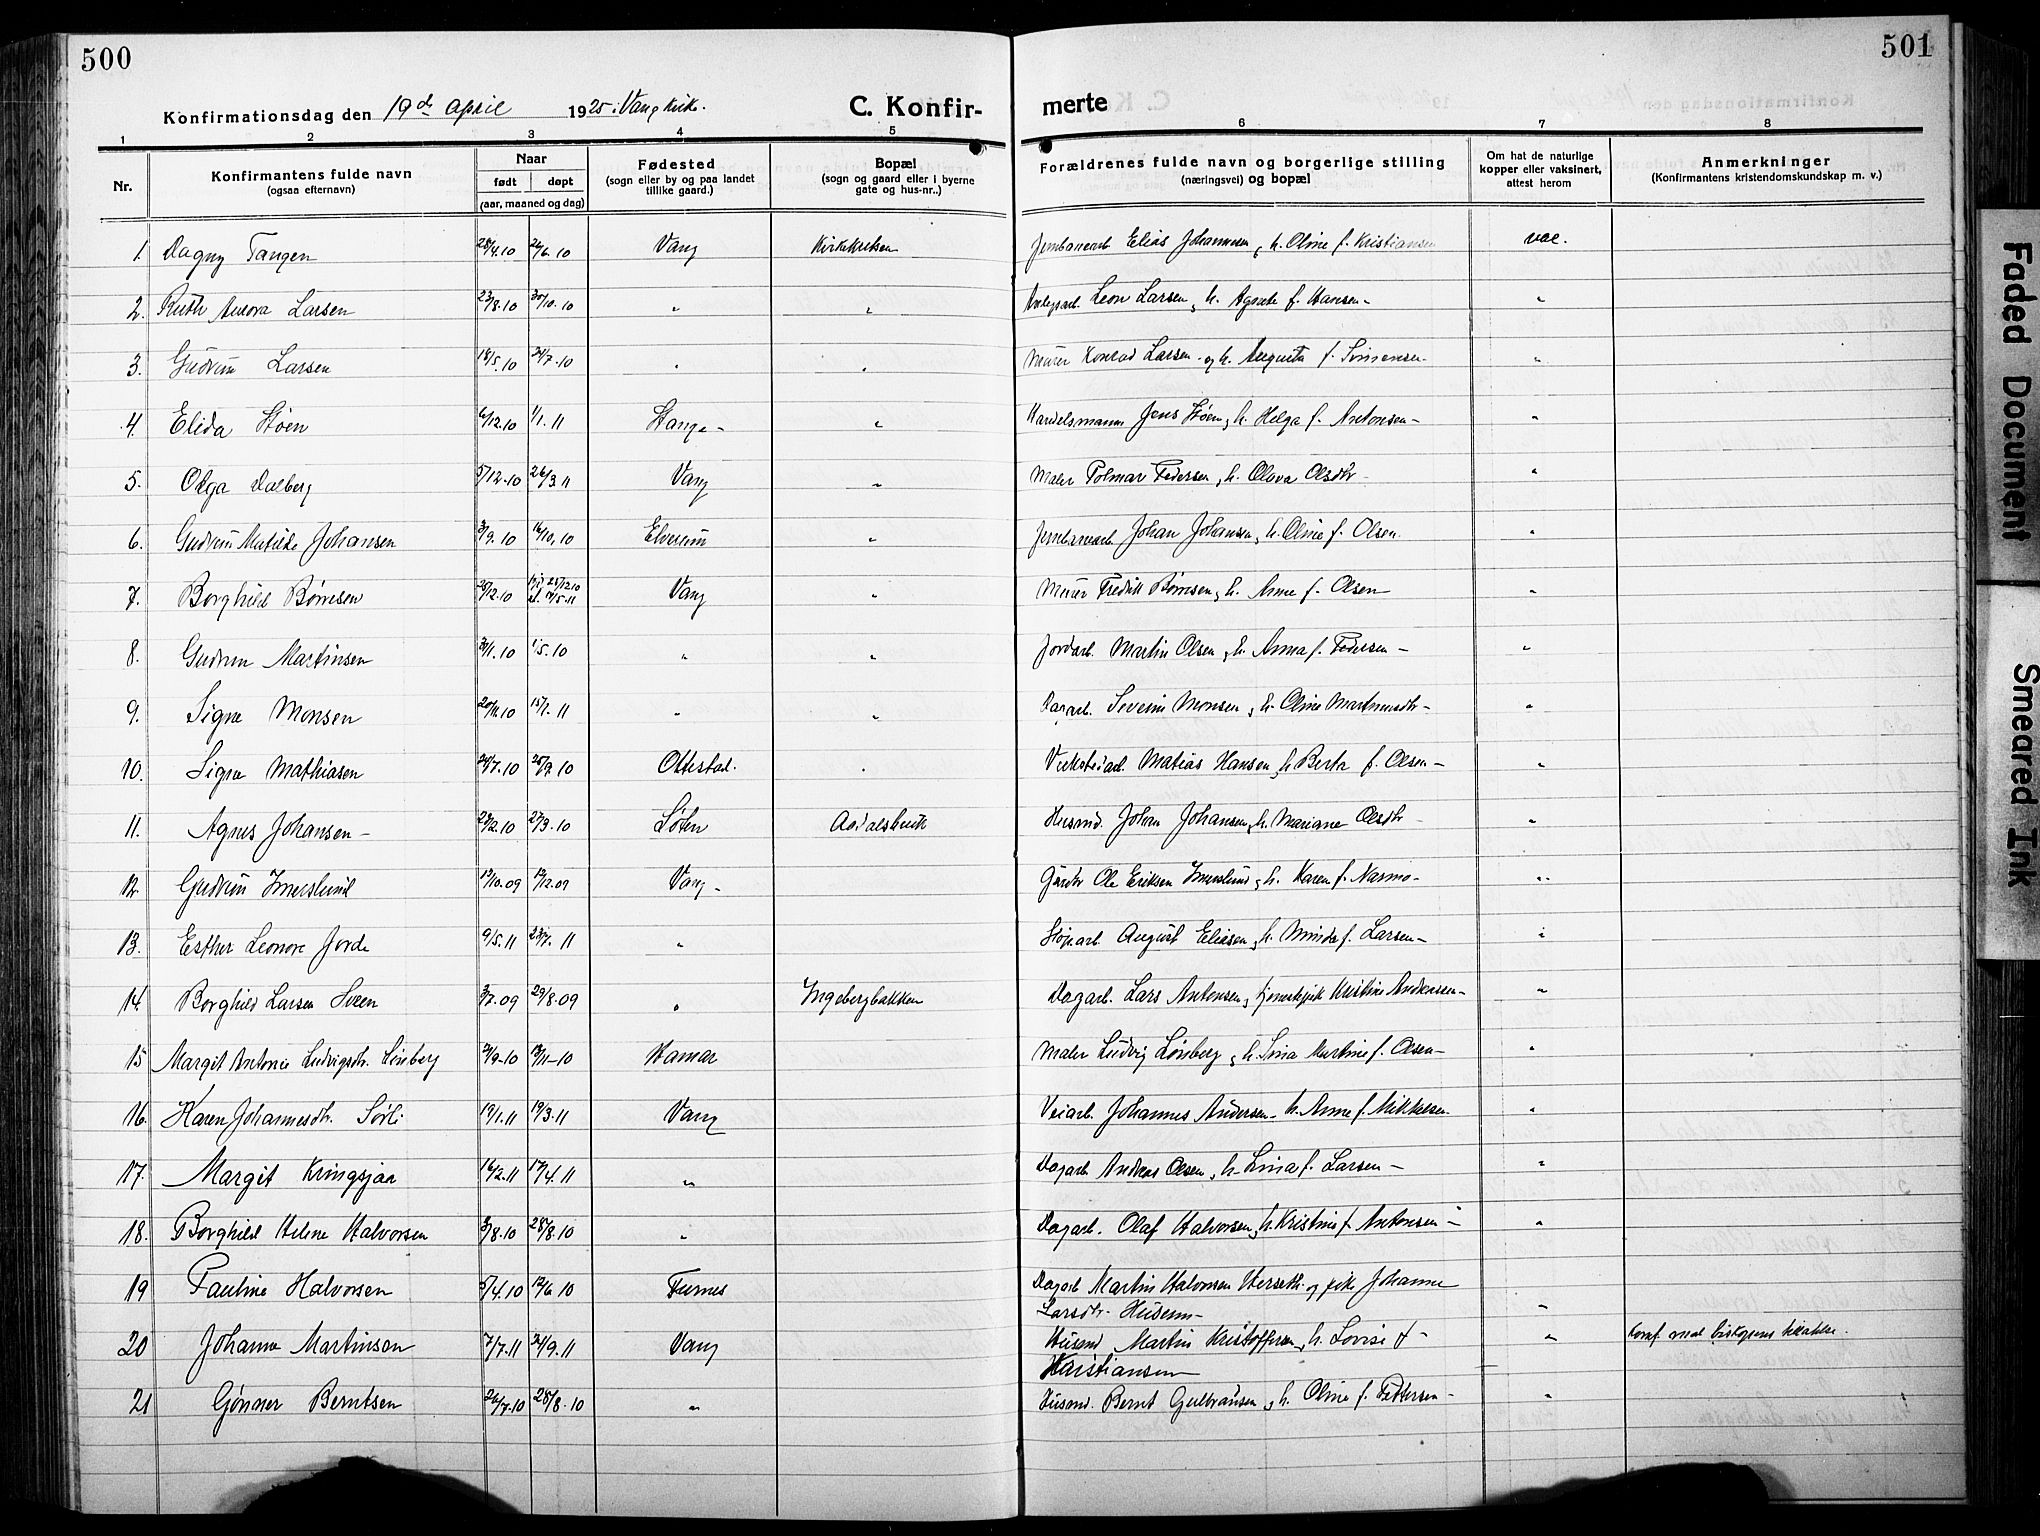 500
501
Konfirmationsdag den 19d April 1925 i Vang kirke.
C. Konfir-
merte
1 2 3 4 5 6 7 8
Nr.
Konfirmantens fulde navn
(ogsaa efternavn)
Naar
født døpt
(aar, maaned og dag)
Fødested
(sogn eller by og paa landet
tillike gaard.)
Bopæl
(sogn og gaard eller i byerne
gate og hus-nr..)
Forældrenes fulde navn og borgerlige stilling
(næringsvei) og bopæl
Om hat de naturlige
kopper eller vaksinert,
attest herom
Anmerkninger
(Konfirmantens kristendomskundskap m. v.)
1. Dagny Tangen 28/4.10 26/6.10 Vang Kirkekretsen Jernbanearb. Elias Johannesen og h. Oline f. Kristiansen vac.
2. Ruth Aurora Larsen 23/8.10 30/10.10 " " Leon Larsen og h. Agnete f. Hansen - "
3. Gudrun Larsen 18/5.10 24/7.10 " " Murer Konrad Larsen og h. Augusta f. Simensen - "
4. Elida Støen 6/12.10 1/1.11 Stange - " Handelsmann Jens Støen og h. Helga f. Antonsen - "
5. Olga Dalberg 5/12.10 26/3.11 Vang " Maler Polmar Pedersen og h. Olava Olsdtr - "
6. Gudrun Matilde Johansen 3/9.10 16/10.10 Elverum " Jernbanearb. Johan Johansen og h. Oline f. Olsen. "
7. Borghild Børresen 26/12.10 Vang " Murer Fredrik Børresen og h. Anne f. Olsen "
8. Gudrun Martinsen 30/1.10 1/5.10 " " Jordarb. Martin Olsen og h. Anna f. Pedersen - "
9. Signe Monsen 20/11.10 15/1.11 " " Dagarb. Severin Monsen og h. Oline Martinusdtr - "
10. Signe Mathiasen 24/7.10 25/9.10 Ottestad. " Matias Hansen og h. Berta f. Olsen - "
11. Agnes Johansen - 23/2.10 27/3.10 Løten Aadalsbruk Husmd. Johan Johansen og h. Mariane Olsdtr - "
12. Gudrun Imerslund 19/10.09 19/12.09 Vang - Gårdbr Ole Eriksen Imerslund og h. Karen f. Narmo - "
13. Esther Leonore Jorde 9/5.11 23/7.11 " August Eliasen og h. Minda f. Larsen - "
14. Borghild Larsen Sveen 3/7.09 29/8.09 " Ingebergbakken Dagarb. Lars Antonsen og Kristine Andersen - "
15 Margit Antonie Ludvigsdtr. Lønberg 21/9-10 Hamar Maler Ludvig Lønberg og h. Lina Martine f. Olsen - "
16. Karen Johannesdtr. Sørli 19/1.11 19/3.11 Vang Veiarb. Johannes Andersen - h. Anne f. Mikkelsen. "
17. Margit Kringsjaa 16/2.11 17/4.11 " Dagarb Andreas Olsen og h. Lina f. Larsen - "
18. Borghild Helene Halvorsen 3/8.10 28/8.10 " Dagarb. Olaf Halvorsen og h. Kristine f. Antonsen - "
19 Pauline Halvorsen 5/4.10 12/6.10 Furnes Dagarb Martin Halvorsen Herseth og pike Johanne
Larsdtr. Husenm - "
20 Johanne Martinsen 7/7.11 24/9.11 Vang Husmd Martin Kristoffersen og h. Lovise f - " konf. med biskopens tilladelse.
Kristiansen
21 Gønner Berntsen 26/7.10 28/8.10 " Husmd. Bernt Gulbransen og h. Oline f. Pettersen - "
Faded Document
Smeared Ink